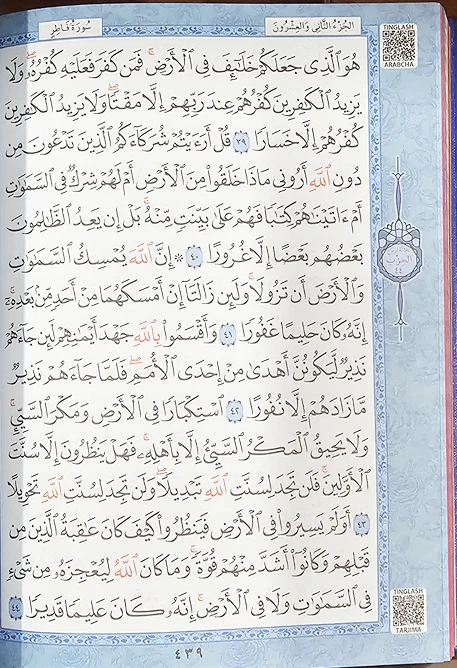 سُورَةُ فَاطِرٍ
الجُزْءُ الثَّانِي وَالعِشْرُونَ
TINGLASH
ARABCHA
هُوَ ٱلَّذِى جَعَلَكُمْ خَلَـٰٓئِفَ فِى ٱلْأَرْضِ ۚ فَمَن كَفَرَ فَعَلَيْهِ كُفْرُهُۥ ۖ وَلَا
يَزِيدُ ٱلْكَـٰفِرِينَ كُفْرُهُمْ عِندَ رَبِّهِمْ إِلَّا مَقْتًا ۖ وَلَا يَزِيدُ ٱلْكَـٰفِرِينَ
كُفْرُهُمْ إِلَّا خَسَارًا ٣٩ قُلْ أَرَءَيْتُمْ شُرَكَآءَكُمُ ٱلَّذِينَ تَدْعُونَ مِن
دُونِ ٱللَّهِ أَرُونِى مَاذَا خَلَقُوا۟ مِنَ ٱلْأَرْضِ أَمْ لَهُمْ شِرْكٌ فِى ٱلسَّمَـٰوَٰتِ
أَمْ ءَاتَيْنَـٰهُمْ كِتَـٰبًا فَهُمْ عَلَىٰ بَيِّنَتٍ مِّنْهُ ۚ بَلْ إِن يَعِدُ ٱلظَّـٰلِمُونَ
بَعْضُهُم بَعْضًا إِلَّا غُرُورًا ٤٠ ۞ إِنَّ ٱللَّهَ يُمْسِكُ ٱلسَّمَـٰوَٰتِ
وَٱلْأَرْضَ أَن تَزُولَا ۚ وَلَئِن زَالَتَآ إِنْ أَمْسَكَهُمَا مِنْ أَحَدٍ مِّنۢ بَعْدِهِۦٓ ۚ
إِنَّهُۥ كَانَ حَلِيمًا غَفُورًا ٤١ وَأَقْسَمُوا۟ بِٱللَّهِ جَهْدَ أَيْمَـٰنِهِمْ لَئِن جَآءَهُمْ
نَذِيرٌ لَّيَكُونُنَّ أَهْدَىٰ مِنْ إِحْدَى ٱلْأُمَمِ ۖ فَلَمَّا جَآءَهُمْ نَذِيرٌ
مَّا زَادَهُمْ إِلَّا نُفُورًا ٤٢ ٱسْتِكْبَارًا فِى ٱلْأَرْضِ وَمَكْرَ ٱلسَّيِّئِ ۚ
وَلَا يَحِيقُ ٱلْمَكْرُ ٱلسَّيِّئُ إِلَّا بِأَهْلِهِۦ ۚ فَهَلْ يَنظُرُونَ إِلَّا سُنَّتَ
ٱلْأَوَّلِينَ ۚ فَلَن تَجِدَ لِسُنَّتِ ٱللَّهِ تَبْدِيلًا ۖ وَلَن تَجِدَ لِسُنَّتِ ٱللَّهِ تَحْوِيلًا
٤٣ أَوَلَمْ يَسِيرُوا۟ فِى ٱلْأَرْضِ فَيَنظُرُوا۟ كَيْفَ كَانَ عَـٰقِبَةُ ٱلَّذِينَ مِن
قَبْلِهِمْ وَكَانُوٓا۟ أَشَدَّ مِنْهُمْ قُوَّةً ۚ وَمَا كَانَ ٱللَّهُ لِيُعْجِزَهُۥ مِن شَىْءٍ
فِى ٱلسَّمَـٰوَٰتِ وَلَا فِى ٱلْأَرْضِ ۚ إِنَّهُۥ كَانَ عَلِيمًا قَدِيرًا ٤٤
الحِزْب
٤٤
TINGLASH
TARJIMA
٤٣٩